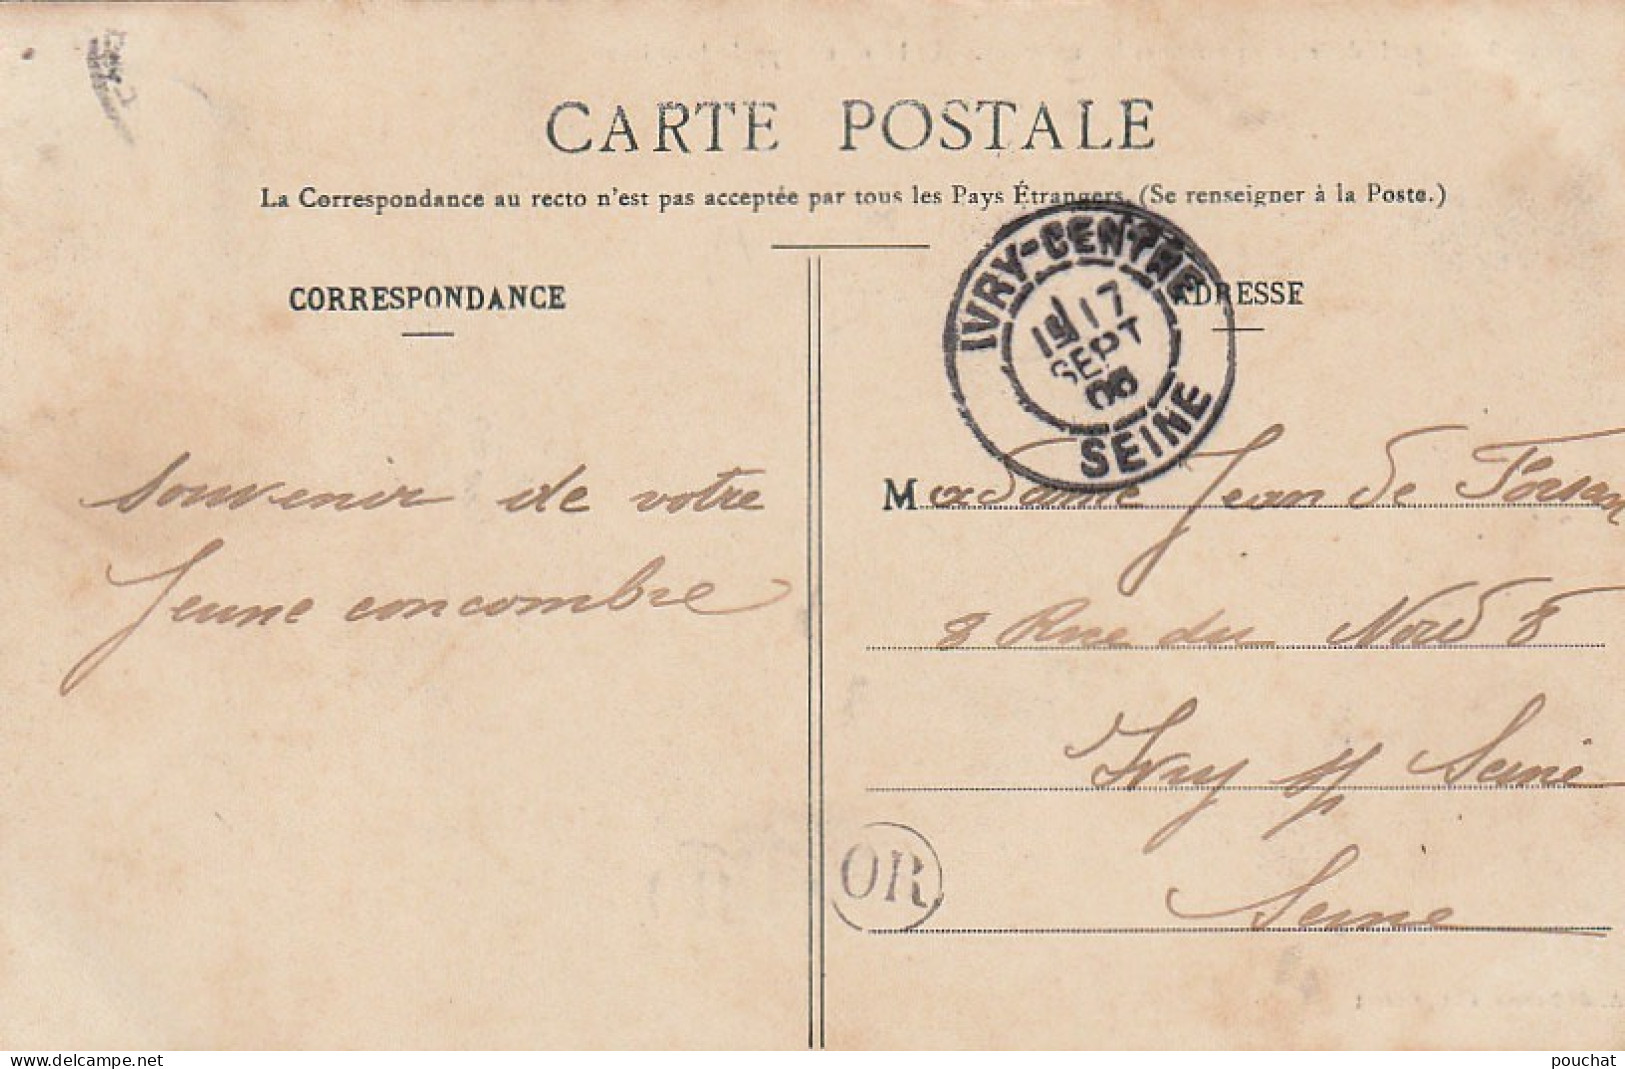 CARTE POSTALE
La Correspondance au recto n'est pas acceptée par tous les Pays Étrangers. (Se renseigner à la Poste.)
CORRESPONDANCE
ADRESSE
IVRY-CENTRE
17
SEPT
SEINE
souvenir de votre
Jeune concombre
Madame Jean de
8 Rue du Nord 8
Ivry s/ Seine
Seine
OR
delcampe.net
pouchat